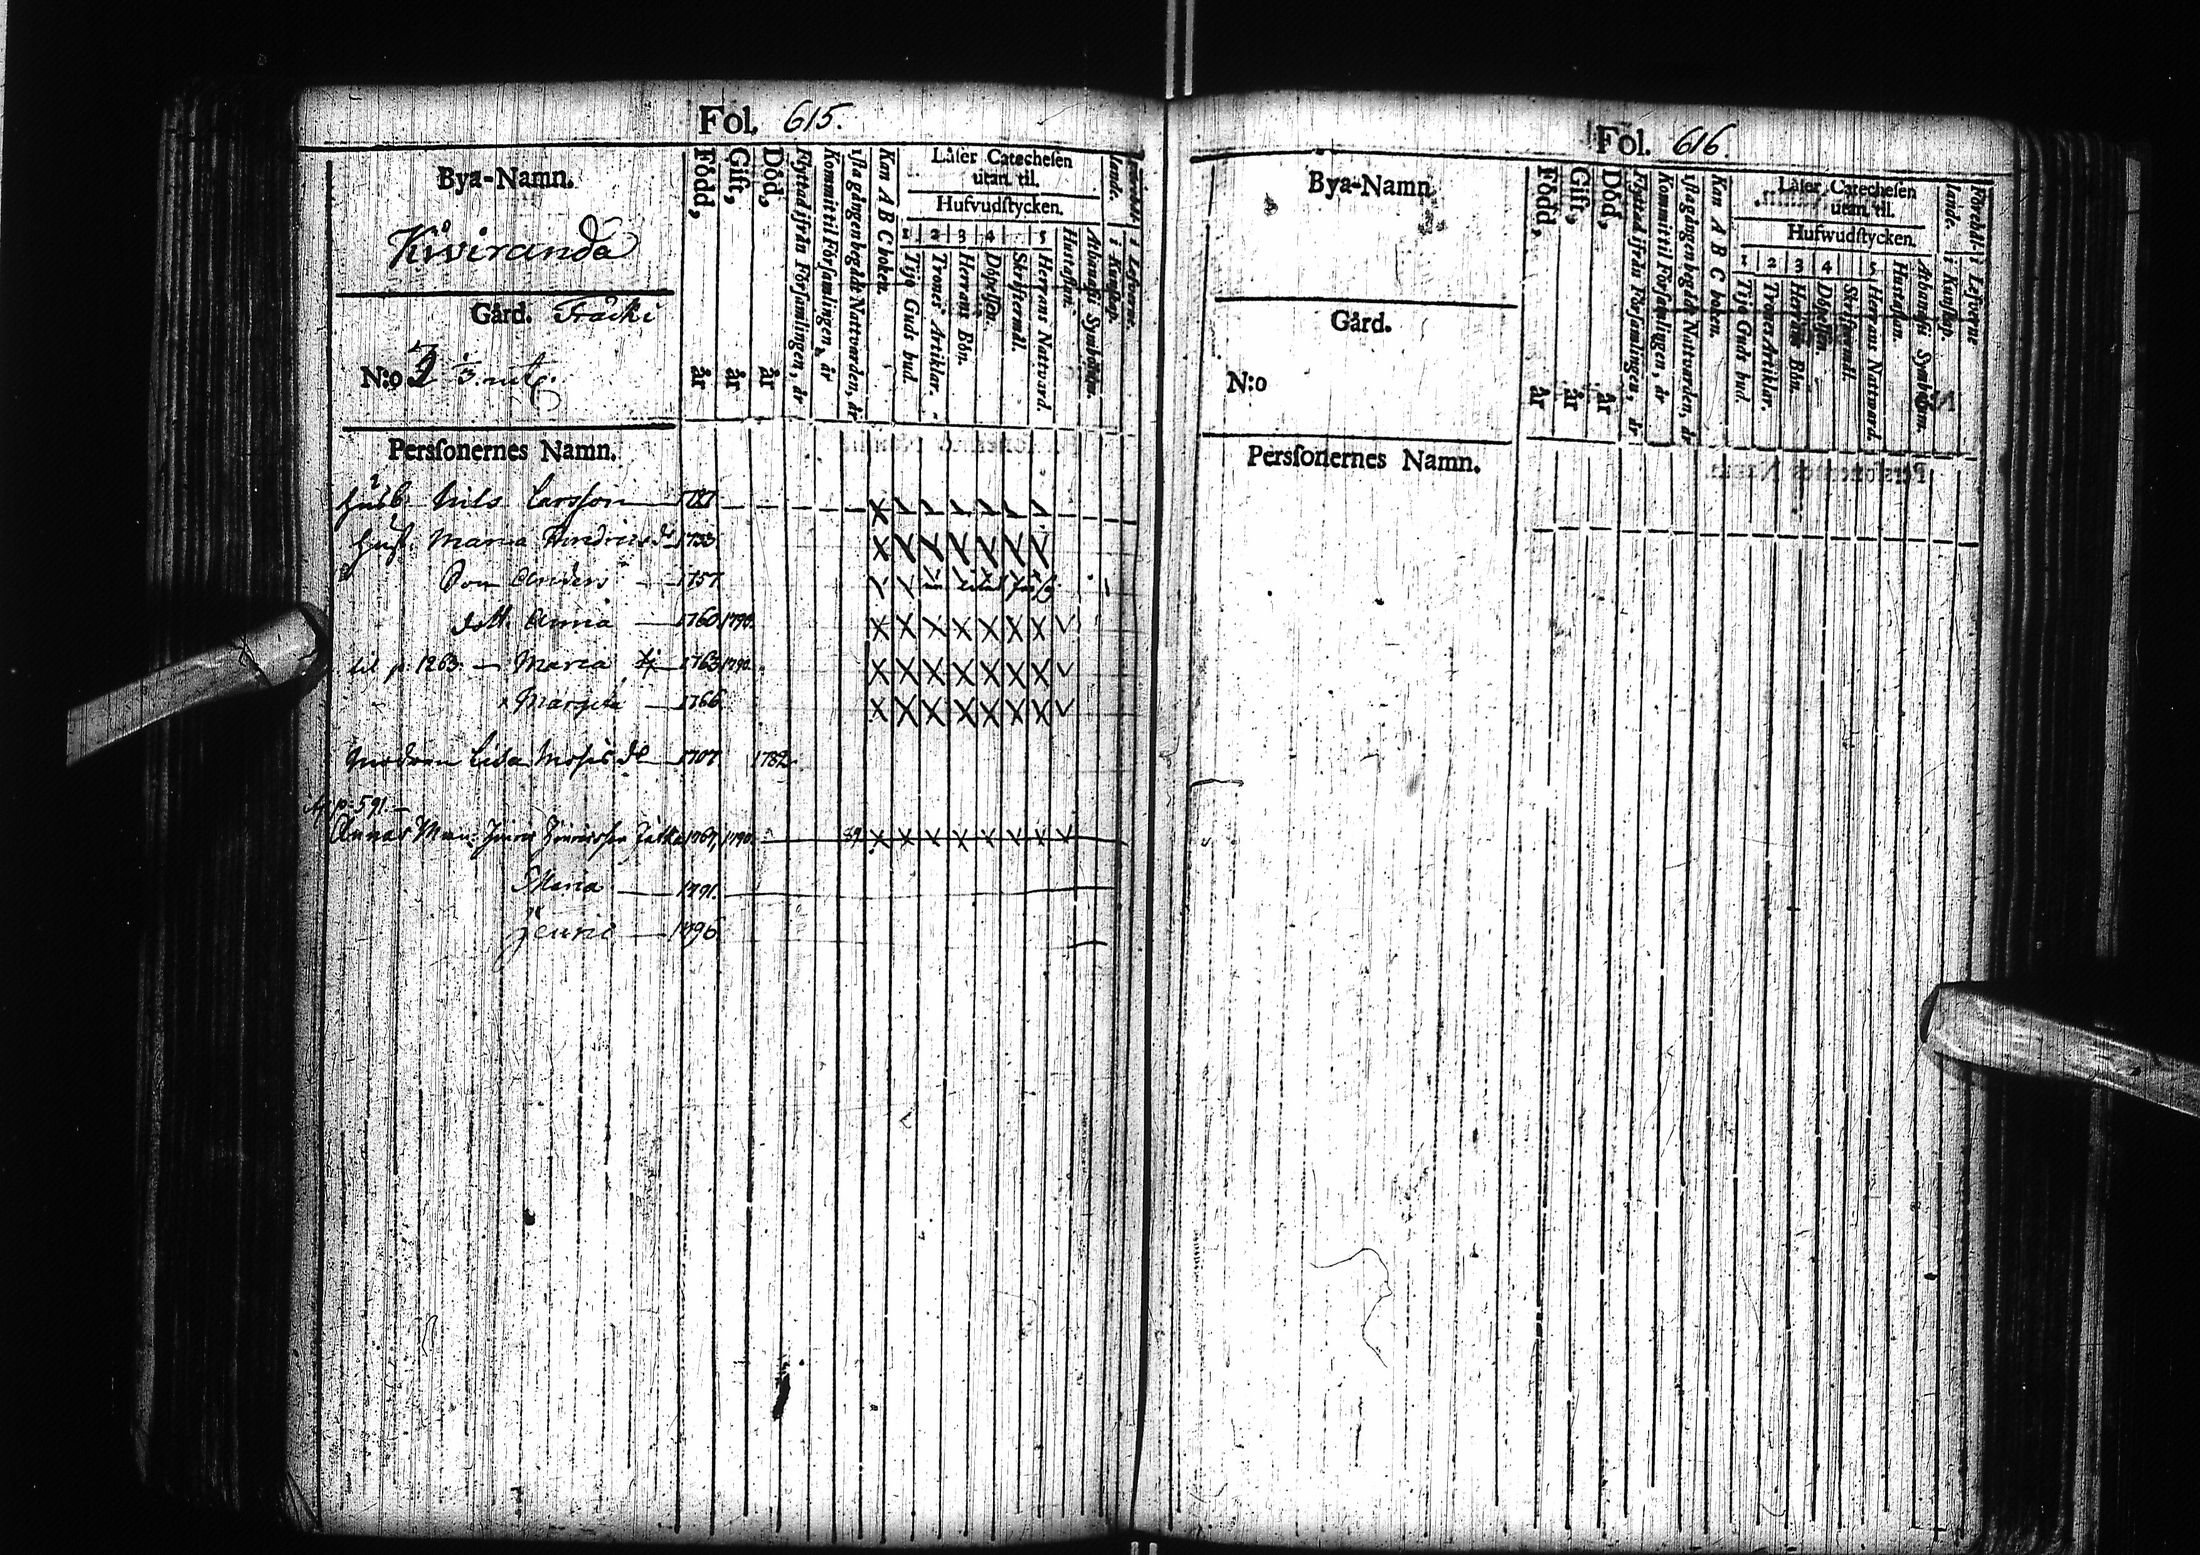 Fol. 615.
Bya-Namn.
Kiviranda
Gård. Fråcki
N:o 2 1/3. mtl.
Född, år
Gift, år
Död, år
Flyttad ifrån Församlingen, år
Kommit til Församlingen, år
1sta gången begådt Nattvarden, år
Kan A B C boken.
Låser Catechesen
utan. til.
Hufvudstycken.
1 2 3 4 5
Tijo Guds bud.
Trones Artiklar.
Herrans Bön.
Döpelsen.
Skriftermål.
Herrans Nattvard.
Hustaflan.
Athanasii Symbolum.
lande.
i Kunskap.
i Lefverne.
Personernes Namn.
Husb. Nils Larsson
Hust. Maria 1733
Son Anders 1757
dott. Anna 1760. 1790.
til p. 1263. Maria 1763 1790.
Margeta 1766.
Modren Lisa Mosis d. 1707. 1782
p. 591.
Annas Man: 1767, 1790. 89.
Maria 1791.
1796.
Fol. 616.
Bya-Namn
Gård.
N:o
Född, år
Gift, år
Död, år
Flyttad ifrån Församlingen, år
Kommit til Församlingen, år
1sta gången begådt Nattvarden, år
Kan A B C boken.
Låser Catechesen
utan. til.
Hufwudstycken.
1 2 3 4 5
Tijo Guds bud.
Trones Artiklar.
Herrans Bön.
Döpelsen.
Skriftermål.
Herrans Nattvard.
Hustaflan.
Athanasii Symbolum.
Förehål-
lande.
i Kunskap.
i Lefverne
Personernes Namn.